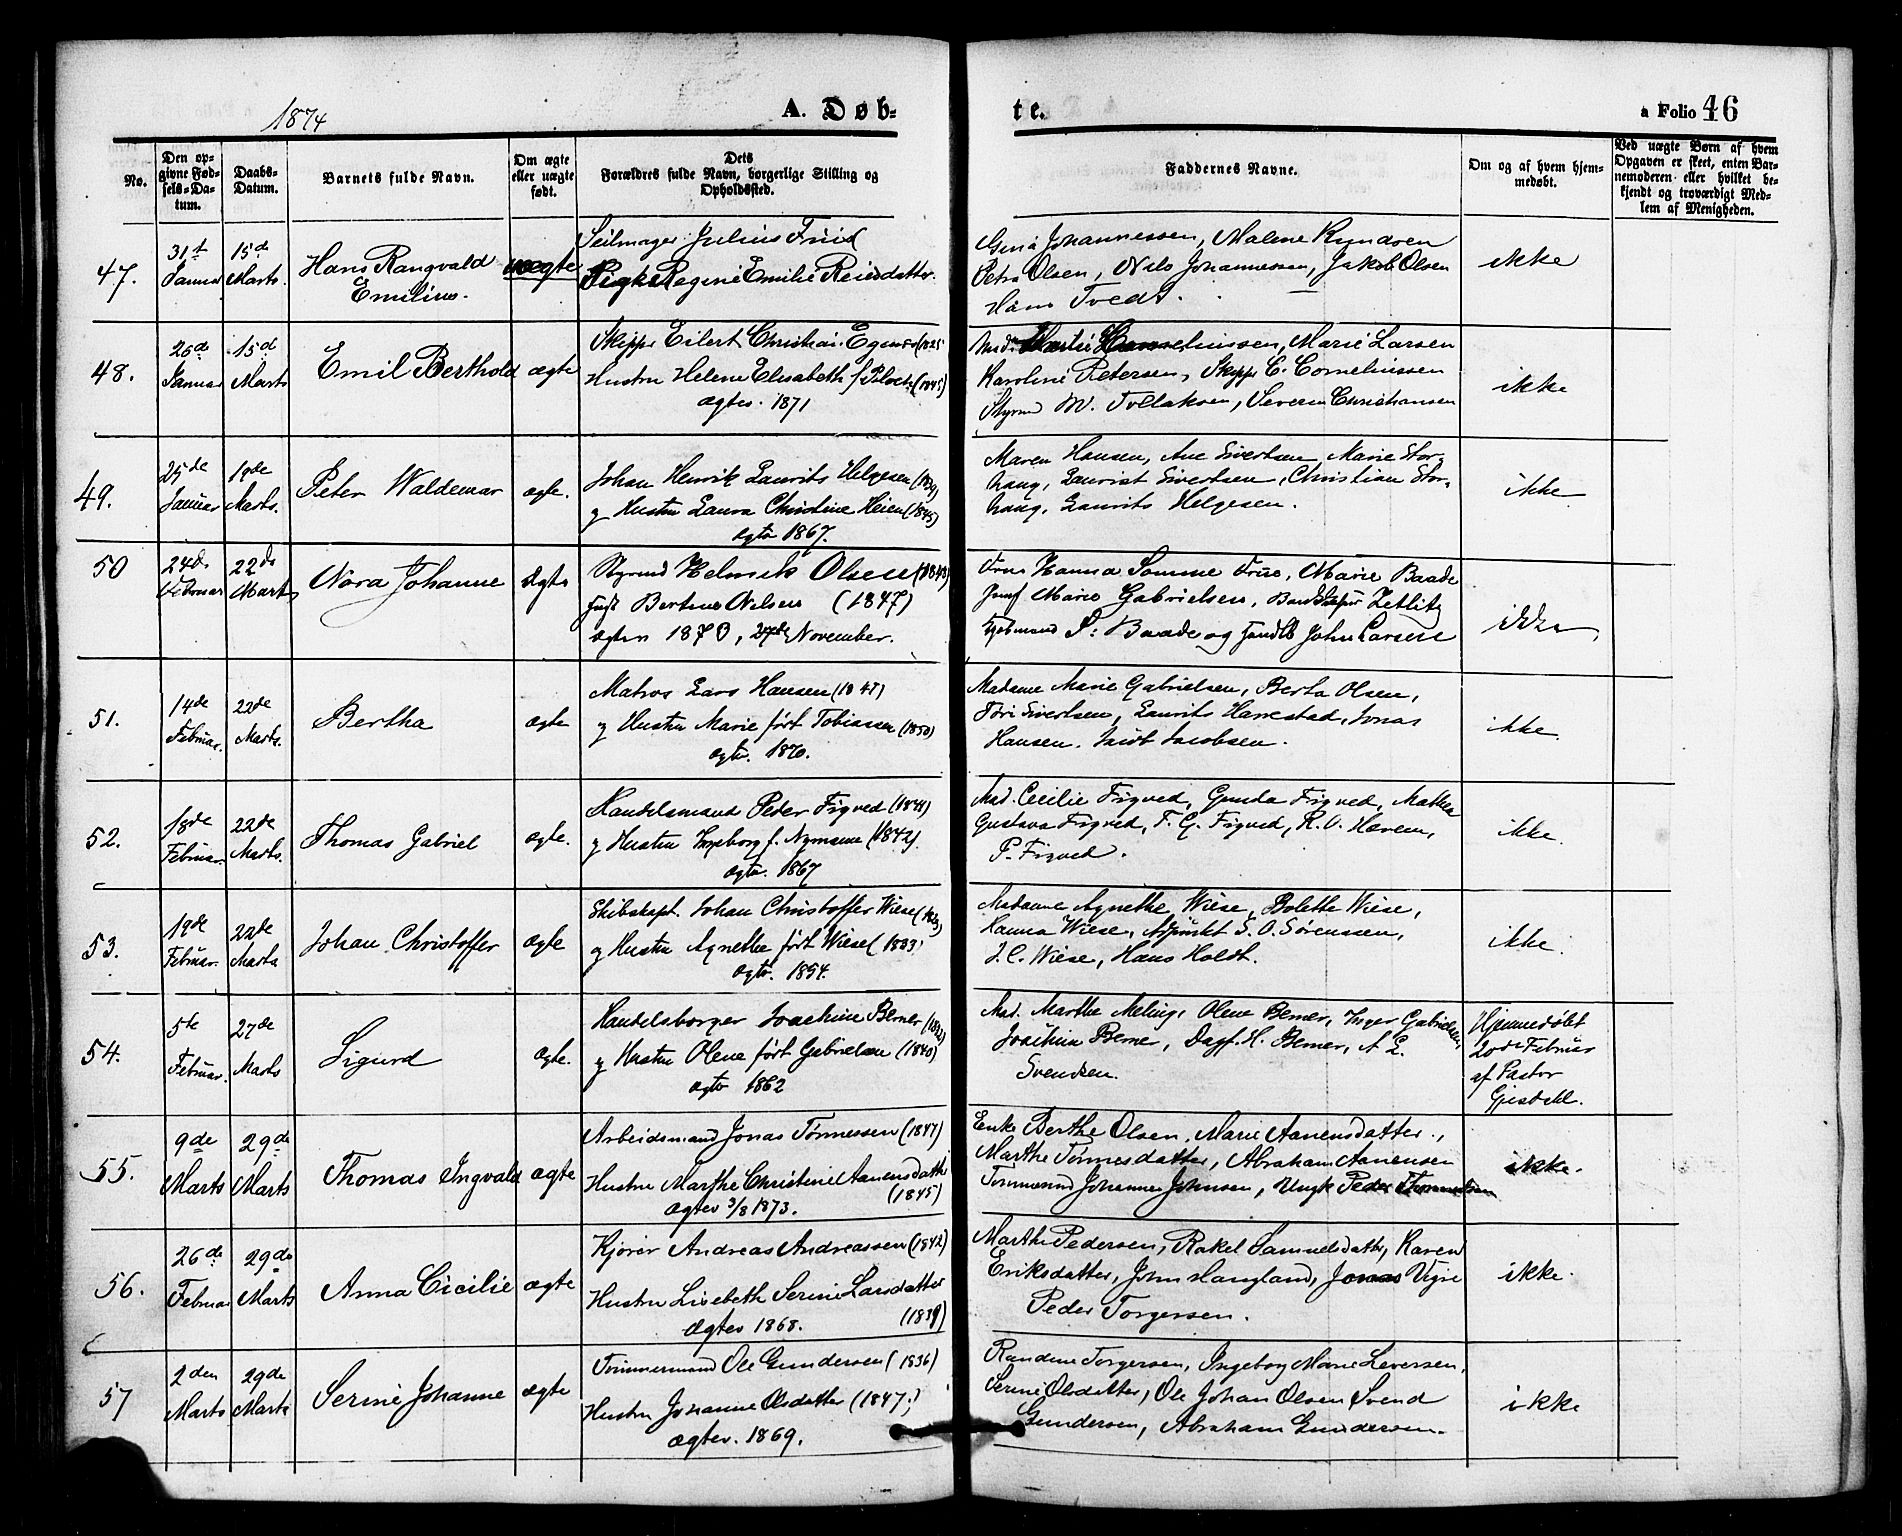 1874
A. Døb-
te.
a Folio 46
No.
Den op-
givne Fød-
sels-Da-
tum.
Daabs-
Datum.
Barnets fulde Navn.
Om ægte
eller uægte
født.
Dets
Forældres fulde Navn, borgerlige Stilling og
Opholdssted.
Faddernes Navne.
Om og af hvem hjem-
medøbt.
Ved uægte Børn af hvem
Opgaven er skeet, enten Bar-
nemoderen eller hvilket be-
kjendt og troværdigt Med-
lem af Menigheden.
47.
31te
Januar
15de
Marts.
Hans Rangvald
Emilius.
uægte
Seilmager Julius
Pige Regine Emilie
Johannessen, Malene Knudsen
Petra Olsen, Nils Johannessen, Jakob Olsen
Hans Tvedt.
ikke
48.
26de
Januar
15de
Marts
Emil Berthold
ægte
Skipper Eilert Christian
Hustru Helene Elisabeth f. (1845)
ægtev. 1871
Marie Larsen
Karoline Petersen, Skipper C. Corneliussen
Styrmd M. Tollaksen, Severin Christiansen
ikke
49.
25de
Januar
19de
Marts.
Peter Waldemar
ægte.
Johan Henrik Laurits Helgesen (1839)
og Hustru Laura Christine Heien (1845)
ægtv 1867.
Maren Hansen, Ane Sivertsen, Marie Stor-
haug, Laurist Sivertsen, Christian Stor-
haug, Laurits Helgesen.
ikke
50
24de
Februar
22de
Marts
Nora Johanne
Ægte
Styrmd Helmik Olsen (1843)
Hust Bertine Nilsen (1847)
ægtev 1870, 27de November.
Fru Hanna Sømme Frue, Marie Baade
Jomf Marie Gabrielsen, Zetlitz
Kjøbmand S: Baade og John Larsen
ikke
51.
14de
Februar.
22de
Marts.
Bertha
ægte
Matros Lars Hansen
og Hustru Marie født Tobiassen (1850)
ægtv. 1870.
Madame Marie Gabrielsen, Berta Olsen,
Sivertsen, Laurits Hanestad, Jonas
Hansen. Jacobsen.
ikke.
52.
18de
Februar.
22de
Marts.
Thomas Gabriel
ægte.
Handelsmand Peder Figved
og Hustru Ingeborg f. Nymann (1842).
ægtv. 1867
Mad. Cecilie Figved, Gunda Figved, Mathea
Gustava Figved, T. G. Figved, R. O. Haven,
P. Figved.
ikke.
53.
19de
Februar.
22de
Marts
Johan Christoffer
ægte
Skibskapt. Johan Christoffer Wiese
og Hustru Agnethe født Wiese (1833)
ægtv. 1854.
Madame Agnethe Wiese, Bolette Wiese,
Hanna Wiese, Adjunkt S. O. Sørenssen,
J. C. Wiese, Hans Holdt.
ikke.
54.
5te
Februar.
27de
Marts
Sigurd
ægte.
Handelsborger Joachim Berner
og Hustru Olene født Gabrielsen (1840)
ægtv 1862
Mad. Marthe Meling, Olene Berner, Inger Gabrielsen
Joachim Berner, Dagf. H. Berner, A E.
Svendsen.
Hjemmedøbt
20de Februar
af Pastor
Gjesdahl.
55.
9de
Marts
29de
Marts
Thomas Ingvald
ægte
Arbeidsmand Jonas Tønnessen (1847)
Hustru Marthe Christine Aanensdatter
(1845)
ægtev 3/8 1873.
Enke Berthe Olsen, Marie Aanensdatter,
Marthe Tønnesdatter, Abraham Aanensen
Tømmermd Johannes Johnsen, Ungk Peder
ikke.
56.
26de
Februar
29de
Marts
Anna Cicilie
ægte
Kjører Andreas Andreassen (1842)
Hustru Lisebeth Serine Larsdatter
(1839)
ægtev 1868.
Marthe Pedersen, Rakel Samuelsdatter, Karen
Eriksdatter, John Haugland, Jonas Vigre
Peder Torgersen.
ikke.
57
2den
Marts
29de
Marts
Serine Johanne
ægte
Tømmermand Ole Gundersen (1836)
Hustru Johanne Olsdatter (1847.)
ægtev. 1869.
Randine Torgersen, Ingeborg Marie Leversen,
Serine Olsdatter, Ole Johan Olsen Svend
Gundersen, Abraham Gundersen.
ikke